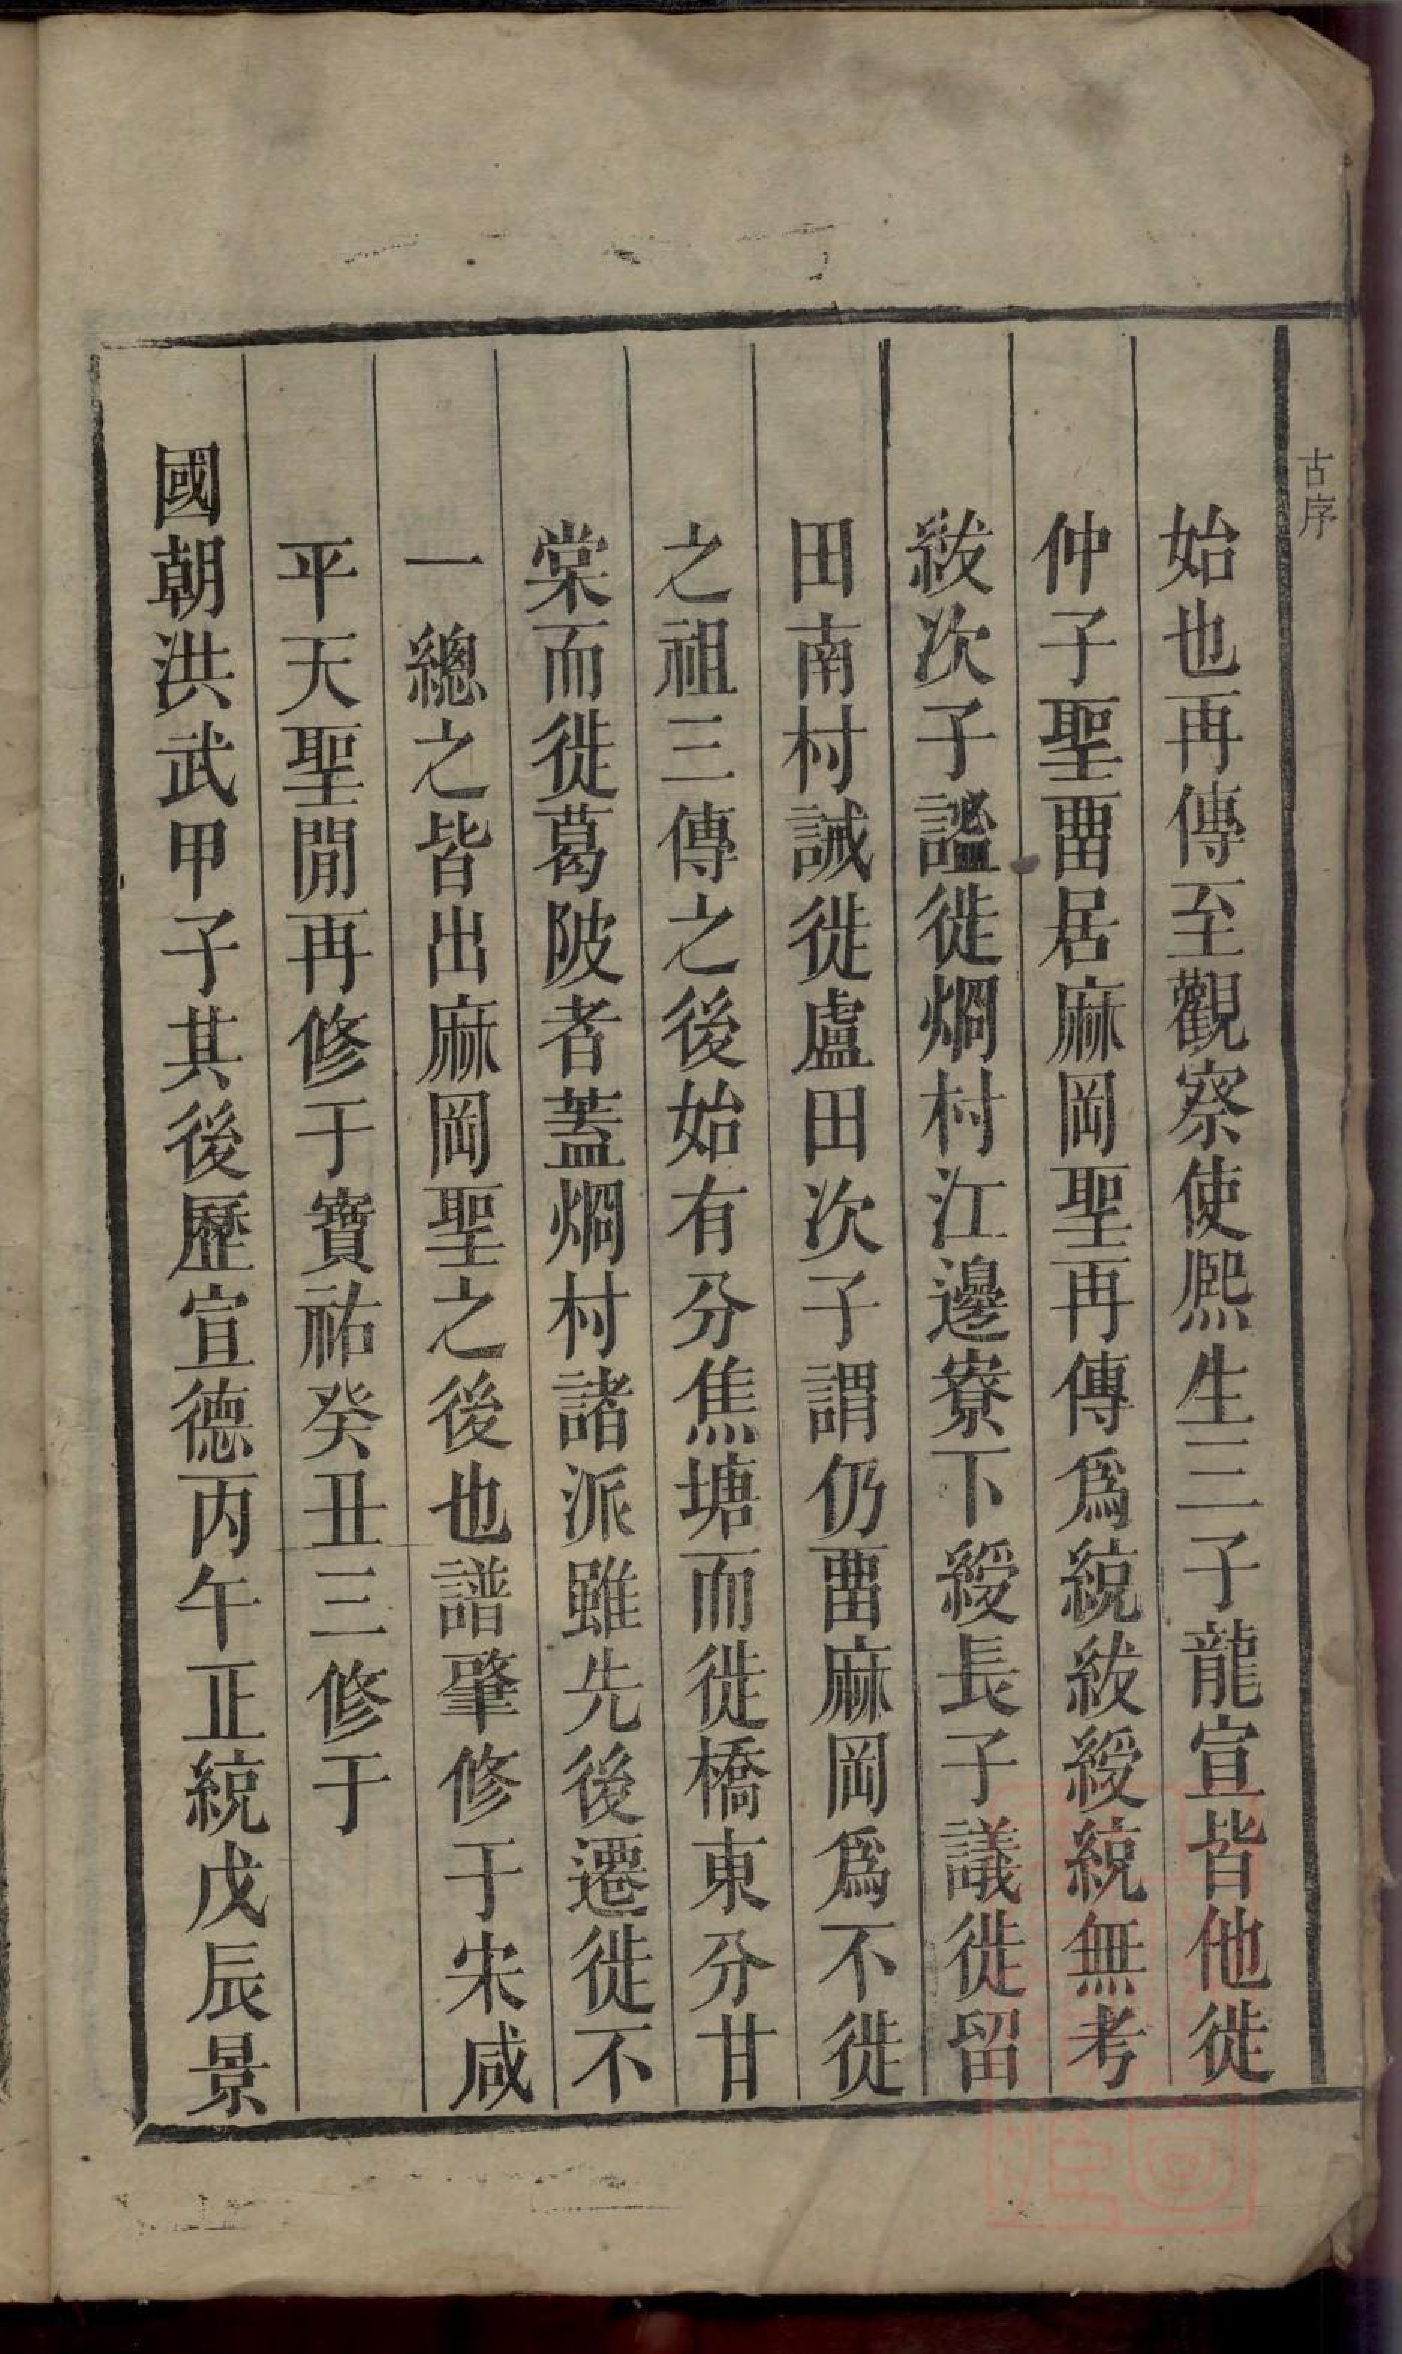 古序
始也再傳至觀察使熈生三子龍宣皆他徙
仲子聖畱居麻岡聖再傳爲綂紱綬綂無考
紱次子謐徙烱村江邊寮下綬長子議徙留
田南村誠徙盧田次子謂仍畱麻岡爲不徙
之祖三傳之後始有分焦塘而徙橋東分甘
棠而徙葛陂者蓋烱村諸派雖先後遷徙不
一總之皆出麻岡聖之後也譜肇修于宋咸
平天聖閒再修于寶祐癸丑三修于
國朝洪武甲子其後歷宣德丙午正綂戊辰景